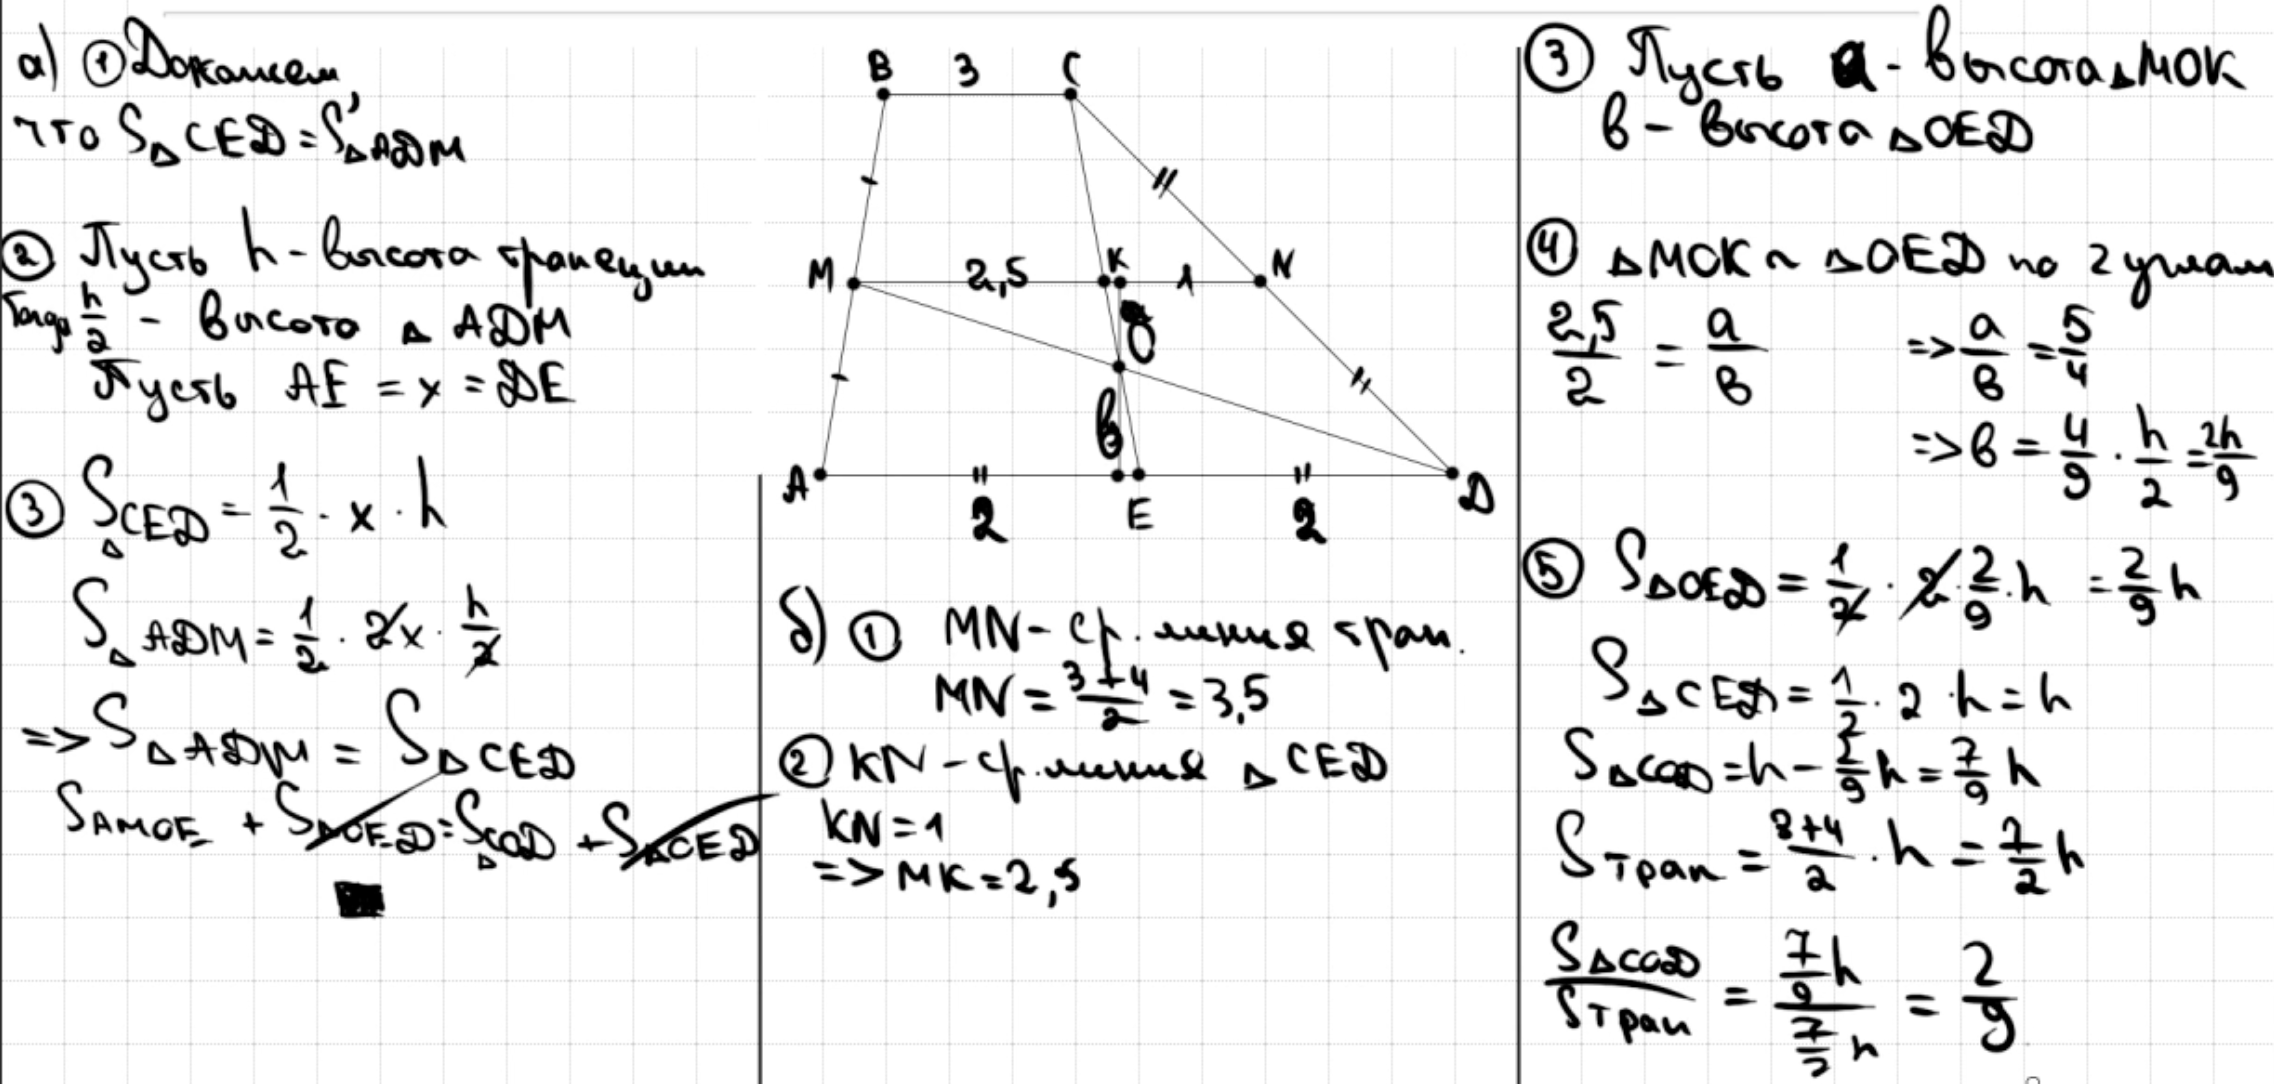 а) ① Докажем,
что S△CED = S△ADM
② Пусть h - высота трапеции
Тогда h/2 - высота △ ADM
Пусть AE = x = DE
③ S△CED = 1/2 · x · h
S△ADM = 1/2 · 2x · h/2
=> S△ADM = S△CED
SAMOE + S△OED = S△COD + S△CED
B 3 C
M 2,5 K 1 N
a O
b
A E D
2 2
б) ① MN - ср. линия трап.
MN = 3+4/2 = 3,5
② KN - ср. линия △ CED
KN = 1
=> MK = 2,5
③ Пусть a - высота △MOK
b - высота △OED
④ △MOK ~ △OED по 2 углам
2,5/2 = a/b => a/b = 5/4
=> b = 4/9 · h/2 = 2h/9
⑤ S△OED = 1/2 · 2 · 2/9 · h = 2/9 h
S△CED = 1/2 · 2 · h = h
S△COD = h - 2/9 h = 7/9 h
Sтрап = 3+4/2 · h = 7/2 h
S△COD/Sтрап = 7/9 h / 7/2 h = 2/9